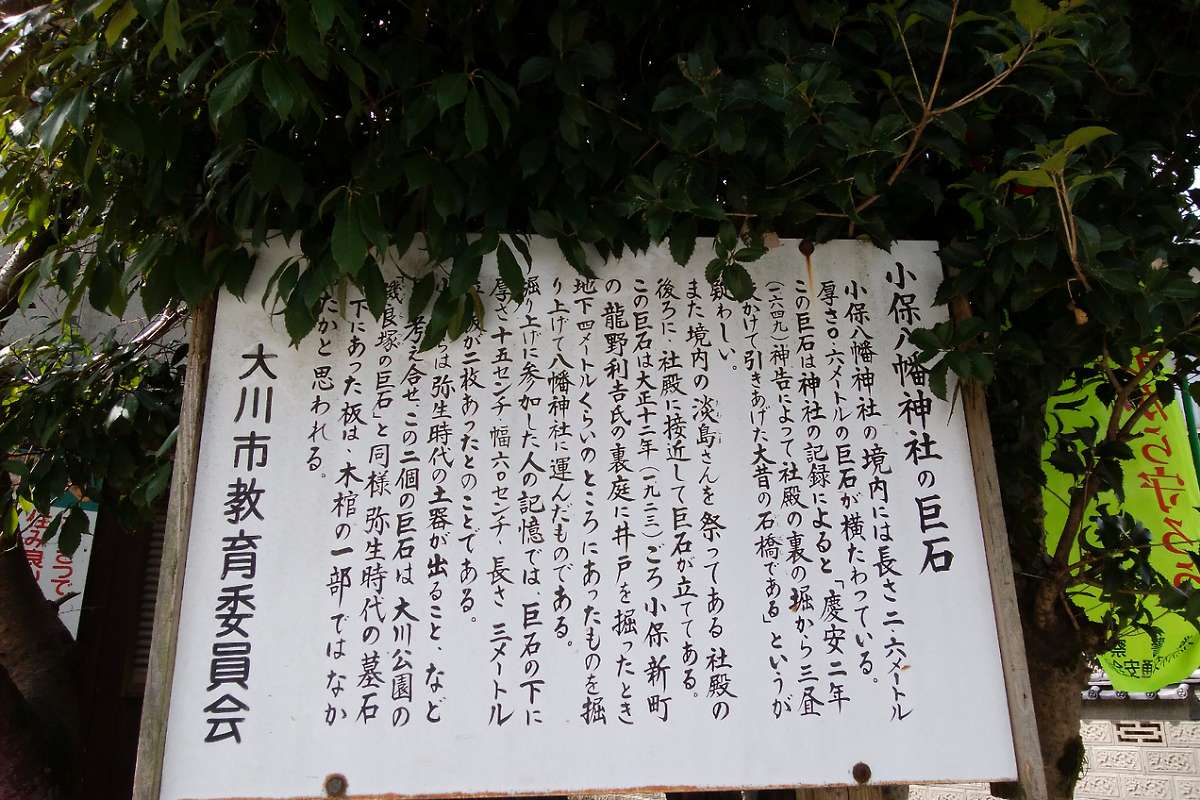 小保八幡神社の巨石
小保八幡神社の境内には長さ二・六メートル
厚さ〇・六メートルの巨石が横たわっている。
この巨石は神社の記録によると「慶安二年
(一六四九)神告によって社殿の裏の堀から三昼
かけて引きあげた大昔の石橋である」というが
疑わしい。
また境内の淡島さんを祭ってある社殿の
後ろに、社殿に接近して巨石が立ててある。
この巨石は大正十二年(一九二三)ごろ小保新町
の龍野利吉氏の裏庭に井戸を掘ったとき
地下四メートルくらいのところにあったものを掘
り上げて八幡神社に運んだものである。
掘り上げに参加した人の記憶では、巨石の下に
厚さ十五センチ・幅六〇センチ、長さ三メートル
が二枚あったとのことである。
は弥生時代の土器が出ること、など
考え合せ、この二個の巨石は、大川公園の
良塚の巨石」と同様弥生時代の墓石
下にあった板は、木棺の一部ではなか
たかと思われる。
大川市教育委員会
守る
安全